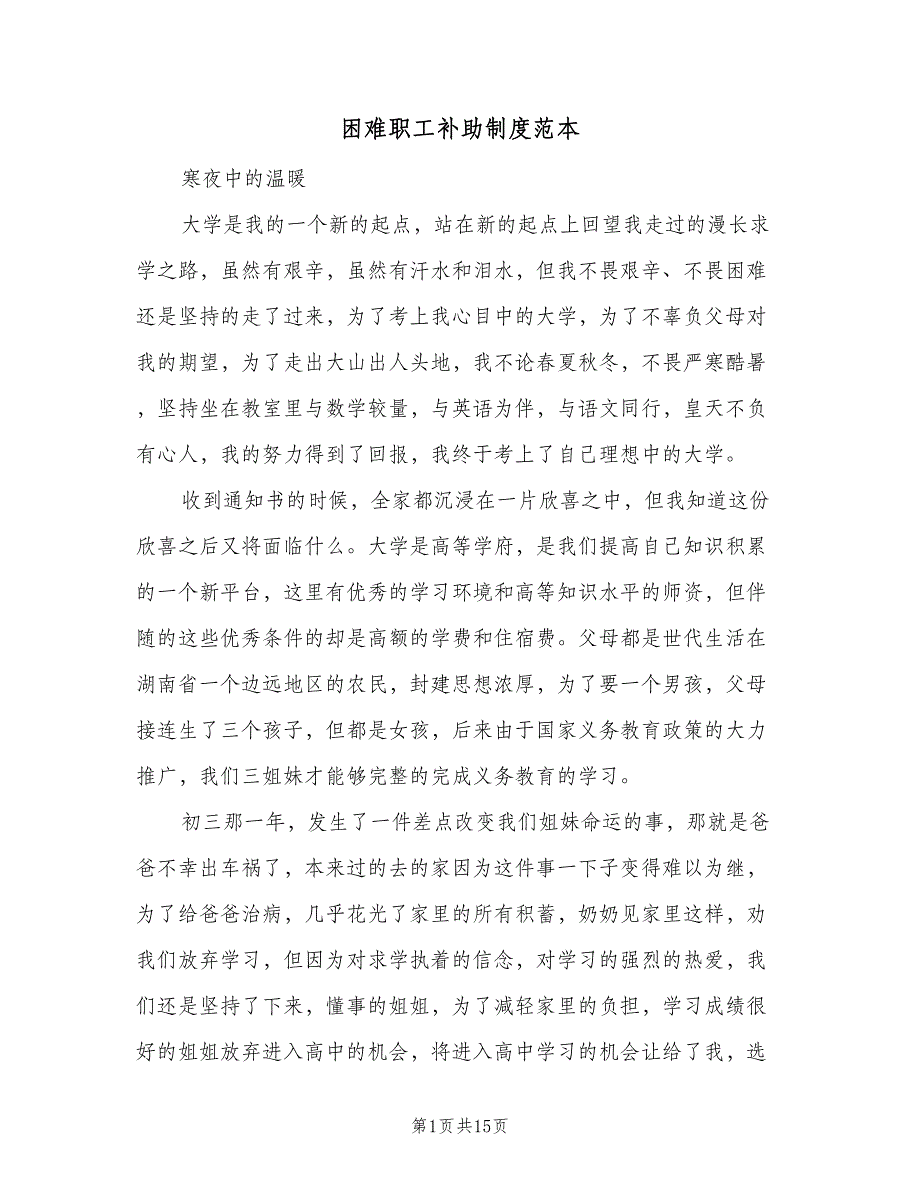 困难职工补助制度范本
寒夜中的温暖
大学是我的一个新的起点，站在新的起点上回望我走过的漫长求
学之路，虽然有艰辛，虽然有汗水和泪水，但我不畏艰辛、不畏困难
还是坚持的走了过来，为了考上我心目中的大学，为了不辜负父母对
我的期望，为了走出大山出人头地，我不论春夏秋冬，不畏严寒酷暑
，坚持坐在教室里与数学较量，与英语为伴，与语文同行，皇天不负
有心人，我的努力得到了回报，我终于考上了自己理想中的大学。
收到通知书的时候，全家都沉浸在一片欣喜之中，但我知道这份
欣喜之后又将面临什么。大学是高等学府，是我们提高自己知识积累
的一个新平台，这里有优秀的学习环境和高等知识水平的师资，但伴
随的这些优秀条件的却是高额的学费和住宿费。父母都是世代生活在
湖南省一个边远地区的农民，封建思想浓厚，为了要一个男孩，父母
接连生了三个孩子，但都是女孩，后来由于国家义务教育政策的大力
推广，我们三姐妹才能够完整的完成义务教育的学习。
初三那一年，发生了一件差点改变我们姐妹命运的事，那就是爸
爸不幸出车祸了，本来过的去的家因为这件事一下子变得难以为继，
为了给爸爸治病，几乎花光了家里的所有积蓄，奶奶见家里这样，劝
我们放弃学习，但因为对求学执着的信念，对学习的强烈的热爱，我
们还是坚持了下来，懂事的姐姐，为了减轻家里的负担，学习成绩很
好的姐姐放弃进入高中的机会，将进入高中学习的机会让给了我，选
第1页共15页